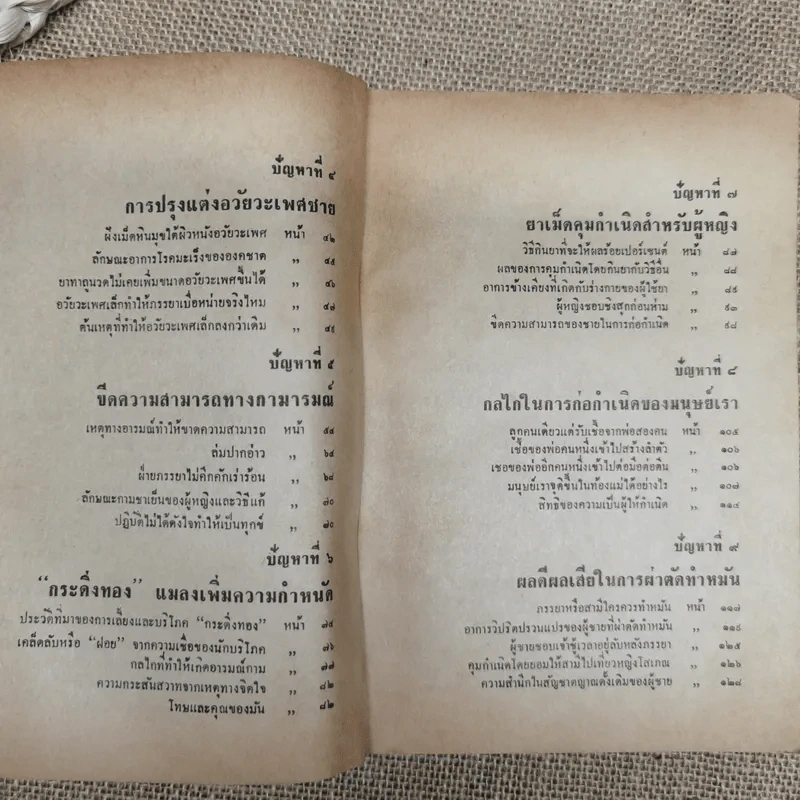 ปัญหาที่ ๔
การปรุงแต่งอวัยวะเพศชาย
ฝังเม็ดหินมุขใต้ผิวหนังอวัยวะเพศ หน้า ๔๒
ลักษณะอาการโรคมะเร็งขององคชาต ,, ๔๕
ยาทาถูนวดไม่เคยเพิ่มขนาดอวัยวะเพศขึ้นได้ ,, ๔๖
อวัยวะเพศเล็กทำให้ภรรยาเบื่อหน่ายจริงไหม ,, ๔๗
ต้นเหตุที่ทำให้อวัยวะเพศเล็กลงกว่าเดิม ,, ๔๙
ปัญหาที่ ๕
ขีดความสามารถทางกามารมณ์
เหตุทางอารมณ์ทำให้ขาดความสามารถ หน้า ๕๔
ล่มปากอ่าว ,, ๖๔
ฝ่ายภรรยาไม่คึกคักเร่าร้อน ,, ๖๘
ลักษณะกามชาเย็นของผู้หญิงและวิธีแก้ ,, ๗๐
ปฏิบัติไม่ได้ดังใจทำให้เป็นทุกข์ ,, ๗๐
ปัญหาที่ ๖
“กระดิ่งทอง” แมลงเพิ่มความกำหนัด
ประวัติที่มาของการเลี้ยงและบริโภค “กระดิ่งทอง” หน้า ๗๔
เคล็ดลับหรือ “ฝอย” จากความเชื่อของนักบริโภค ,, ๗๖
กลไกที่ทำให้เกิดอารมณ์กาม ,, ๗๗
ความกระสันสวาทจากเหตุทางจิตใจ ,, ๘๒
โทษและคุณของมัน ,, ๘๒
ปัญหาที่ ๗
ยาเม็ดคุมกำเนิดสำหรับผู้หญิง
วิธีกินยาที่จะให้ผลร้อยเปอร์เซนต์ หน้า ๘๗
ผลของการคุมกำเนิดโดยกินยากับวิธีอื่น ,, ๘๘
อาการข้างเคียงที่เกิดกับร่างกายของผู้ใช้ยา ,, ๘๙
ผู้หญิงชอบชิงสุกก่อนห่าม ,, ๙๓
ขีดความสามารถของชายในการก่อกำเนิด ,, ๙๘
ปัญหาที่ ๘
กลไกในการก่อกำเนิดของมนุษย์เรา
ลูกคนเดียวแต่รับเชื้อจากพ่อสองคน หน้า ๑๐๕
เชื้อของพ่อคนหนึ่งเข้าไปสร้างลำตัว ,, ๑๐๖
เชอของพ่ออีกคนหนึ่งเข้าไปต่อมือต่อตีน ,, ๑๐๖
มนุษย์เราจุติขึ้นในท้องแม่ได้อย่างไร ,, ๑๐๗
สิทธิของความเป็นผู้ให้กำเนิด ,, ๑๑๔
ปัญหาที่ ๙
ผลดีผลเสียในการผ่าตัดทำหมัน
ภรรยาหรือสามีใครควรทำหมัน หน้า ๑๑๗
อาการวิปริตปรวนแปรของผู้ชายที่ผ่าตัดทำหมัน ,, ๑๑๙
ผู้ชายชอบเจ้าชู้เวลาอยู่ลับหลังภรรยา ,, ๑๒๕
คุมกำเนิดโดยยอมให้สามีไปเที่ยวหญิงโสเภณี ,, ๑๒๖
ความสำนึกในสัญชาตญาณดั้งเดิมของผู้ชาย ,, ๑๒๘